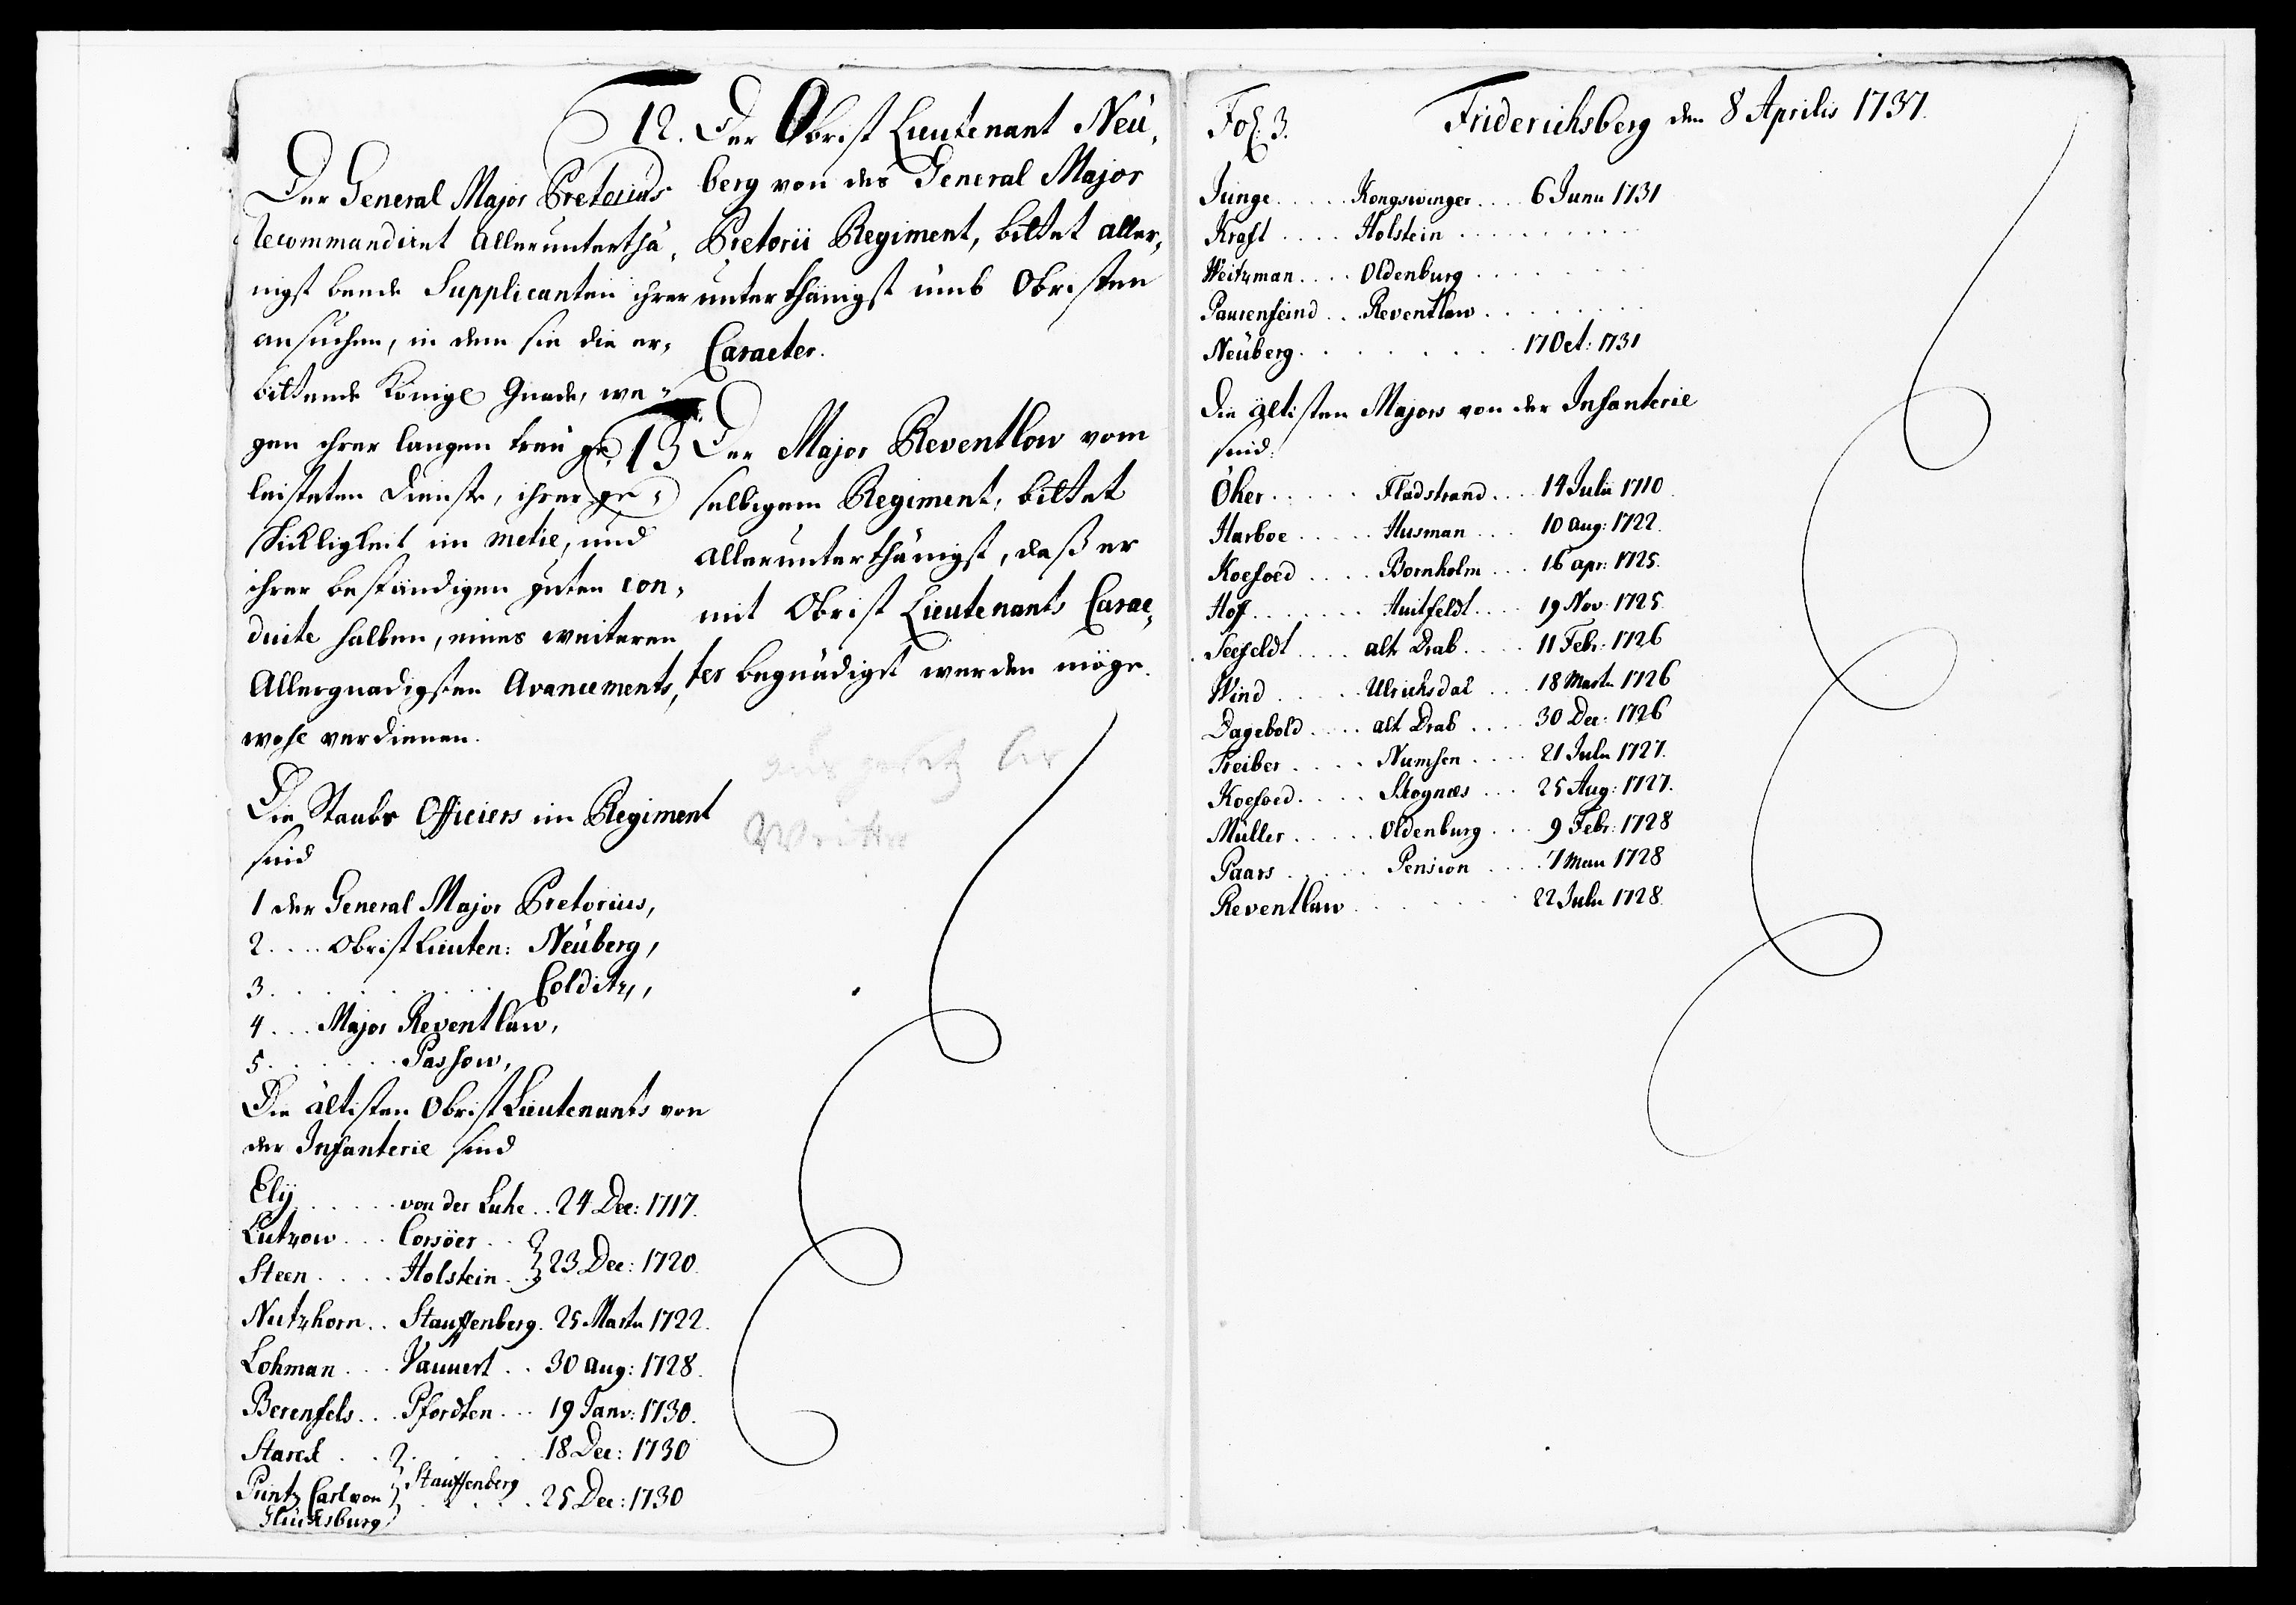 Der General Major Pretorius
recommandirt allerunterthä,
nigst beude Supplicanten ihrer
ansuchen, in dem sie die er,
bittende Königl Gnade, we,
gen ihrer langen treu ge,
leisteten Dienste, ihrer ge,
schickligkeit im metie, und
ihrer beständigen guten con,
duite halben, eines weiteren
Allergnadigsten Avancements,
wohl verdienen.
Die Staabs Officiers im Regiment
sind
1 der General Major Pretorius,
2 .... Obrist Lieuten: Neüberg,
3 . . . . . . . Colditz,
4 ... Major Reventlau,
5 . . . . . Passow,
Die ältisten Obrist Lieutenants von
der Infanterie sind
Elÿ . . . . . . von der Luhe . . 24 Dec: 1717.
Lützow . . . Corsöer . .
Steen . . . . Holstein . . } 23 Dec: 1720.
Nutzhorn . . Stauffenberg . 25 Martii 1722.
Lohman . . . Vauuert . . 30 aug: 1728.
Berenfels . . . Pfordten . . . 19 Janv: 1730.
Starck . . . . . . . 18 Dec: 1730
Printz Carl von } Stauffenberg . . . . 25 Dec: 1730
Glücksburg
12. Der Obrist Lieutenant Neü,
berg von des General Major
Pretorii Regiment, bittet aller,
unterthänigst umb Obristen
Caracter.
13 Der Major Reventlow vom
selbigem Regiment, bittet
allerunterthänigst, daß er
mit Obrist Lieutenants Carac,
ter begnädigt werden möge.
Fol: 3. Friderichsberg den 8 Aprilis 1737.
Junge . . . . . Kongswinger . . . . 6 Junii 1731
Kraft . . . . Holstein . . . . . . . . .
Weitzman . . . . Oldenburg . . . . . . . .
Paurenfeind . . . Reventlau . . . . . . . .
Neüberg . . . . . . . 17 Oct: 1731
Die ältisten Majors von der Infanterie
sind:
Öker . . . . . Fladstrand . . . . 14 Julii 1710.
Harboe . . . . . Husman . . . 10 aug: 1722.
Koefoed . . . . Bornholm . . . 16 apr: 1725.
Hoff . . . . . . Huitfeldt . . . . 19 Nov: 1725.
Seefeldt . . . . alt Drab . . . . 11 Febr: 1726
Wind . . . . . Ulrichsdal . . . 18 Martii 1726
Dagebold . . . . alt Drab . . . . 30 Dec: 1726
Treiber . . . . Numsen . . . . 21 Julii 1727.
Koefoed . . . . Skognæs . . . 25 Aug: 1727.
Müller . . . . . Oldenburg . . . 9 Febr: 1728
Paars . . . . . Pension . . . . 7 Maii 1728
Reventlau . . . . . . . 22 Julii 1728.